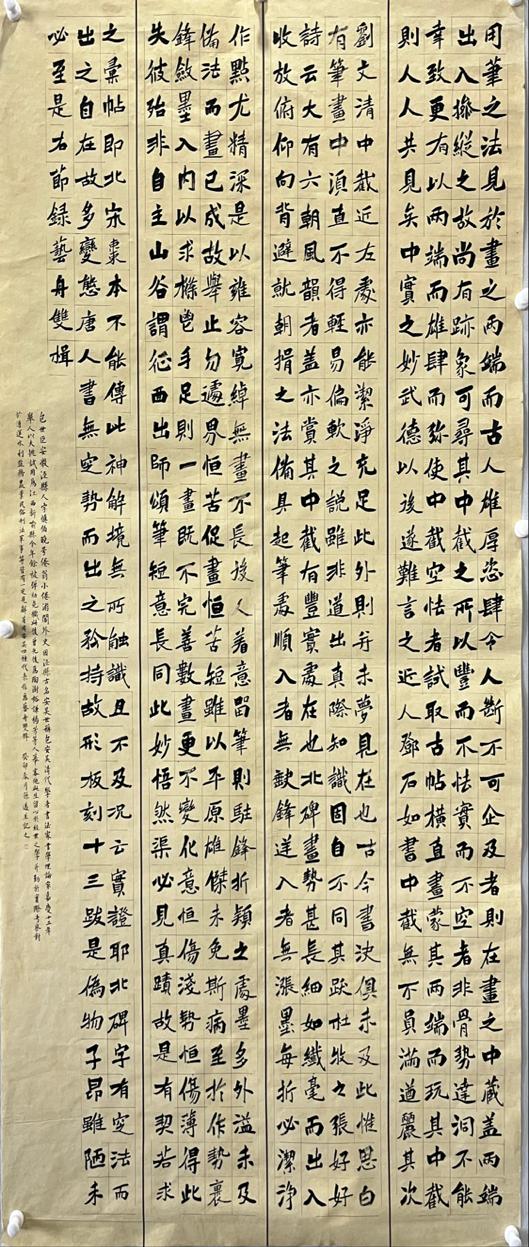 用筆之法見於畫之兩端而古人雄厚恣肆令人斷不可企及者則在畫之中藏盖兩端
出入操縱之故尚有跡象可尋其中截之所以豐而不怯實而不空者非骨勢達洞不能
幸致更有以兩端而雄肆而弥使中截空怯者試取古帖横直畫蒙其兩端而玩其中截
則人人共見矣中實之妙武德以後遂難言之近人鄧石如書中截無不員滿遒麗其次
劉文清中截近左處亦能潔淨充足此外則并未夢見在也古今書決俱未及此惟思白
有筆畫中須直不得輕易偏軟之說雖非道出真際知識固自不同其跋杜牧之張好好
詩云大有六朝風韻者蓋亦賞其中截有豐實處在也北碑畫勢甚長細如纖毫而出入
收放俯仰向背避就朝揖之法備具起筆處順入者無缺鋒逆入者無漲墨每折必潔淨
作點尤精深是以雍容寬綽無畫不長後人着意留筆則駐鋒折穎之處墨多外溢未及
備法而畫已成故舉止匆遽界恒苦促畫恒苦短雖以平原雄傑未免斯病至於作勢裹
鋒斂墨入內以求條鬯手足則一畫既不完善數畫更不變化意恒傷淺勢恒傷薄得此
失彼殆非自主山谷謂征西出師頌筆短意長同此妙悟然渠必見真蹟故是有契若求
之彙帖即北宋棗本不能傳此神解境無所觸識且不及況云實證耶北碑字有定法而
出之自在故多變態唐人書無定勢而出之矜持故形板刻十三跋是偽物子昂雖陋未
必至是右節録藝舟雙楫